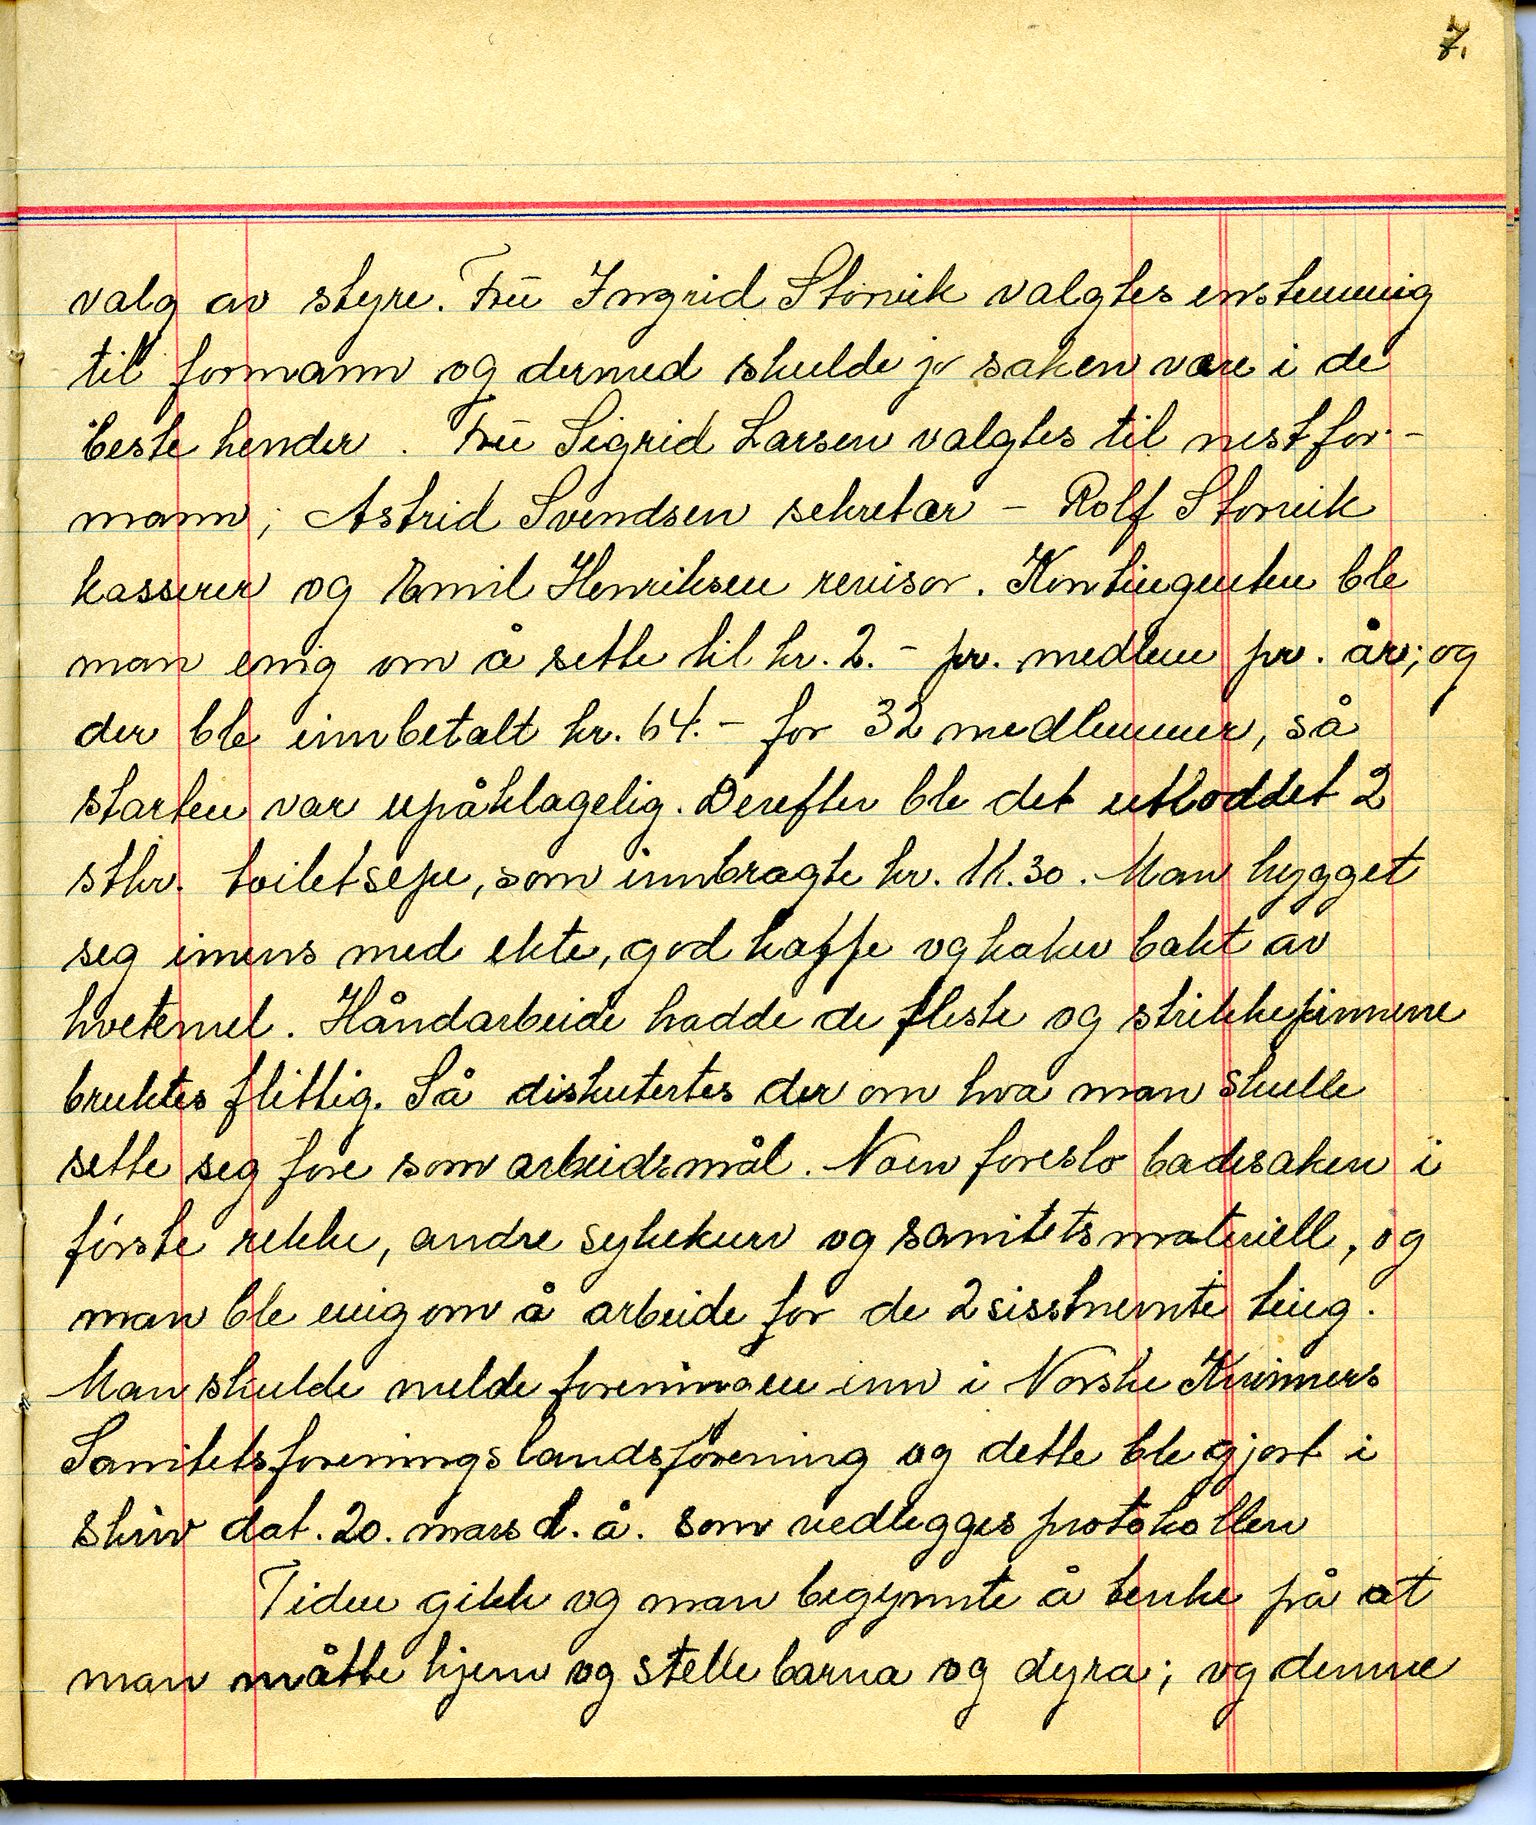 7.
valg av styre. Frū Ingrid Storvik valgtes enstemmig
til formann og dermed skulde jo saken være i de
beste hender. Frū Sigrid Larsen valgtes til nestfor-
mann; Astrid Svendsen sekretær – Rolf Storvik
kasserer og Emil Henriksen revisor. Kontingenten ble
man enig om å sette til kr. 2.– pr. medlem pr. år; og
der ble innbetalt kr. 64.– for 32 medlemmer, så
starten var upåklagelig. Derefter ble det utloddet 2
stkr. toiletsepe, som innbragte kr. 11.30. Man hygget
seg imens med ekte, god kaffe og kaker bakt av
hvetemel. Håndarbeide hadde de fleste og strikkepinnene
bruktes flittig. Så diskutertes der om hva man skulle
sette seg fore som arbeidsmål. Noen foreslo badesaken i
første rekke, andre sykekurv og sanitetsmateriell, og
man ble enig om å arbeide for de 2 sisstnevnte ting.
Man skulde melde foreningen inn i Norske Kvinners
Sanitetsforenings landsforening og dette ble gjort i
skriv dat. 20. mars d. å. som vedlegges protokollen
Tiden gikk og man begynnte å tenke på at
man måtte hjem og stelle barna og dyra; og denne